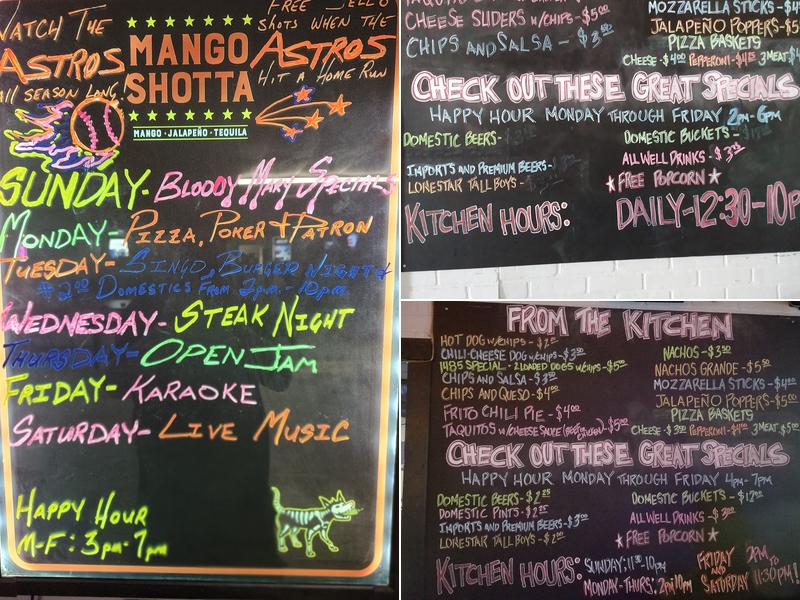 WATCH THE
ASTROS
ALL SEASON LONG
MANGO
SHOTTA
MANGO · JALAPEÑO · TEQUILA
FREE JELLO
SHOTS WHEN THE
ASTROS
HIT A HOME RUN
SUNDAY- BLOODY MARY SPECIALS
MONDAY- PIZZA, POKER & PATRON
TUESDAY- SINGO, BURGER NIGHT &
$2.00 DOMESTICS FROM 2p.m.- 10p.m.
WEDNESDAY- STEAK NIGHT
THURSDAY- OPEN JAM
FRIDAY- KARAOKE
SATURDAY- LIVE MUSIC
HAPPY HOUR
M-F: 3pm-7pm
CHEESE SLIDERS w/CHIPS-$5.00
CHIPS AND SALSA -
MOZZARELLA STICKS-
JALAPEÑO POPPERS-
PIZZA BASKETS
CHEESE-$4.00 PEPPERONI- 3 MEAT
CHECK OUT THESE GREAT SPECIALS
HAPPY HOUR MONDAY THROUGH FRIDAY 2pm-6pm
DOMESTIC BEERS-
IMPORTS AND PREMIUM BEERS-
LONESTAR TALL BOYS -
DOMESTIC BUCKETS -
ALL WELL DRINKS -
FREE POPCORN
KITCHEN HOURS: DAILY-12:30-10P
FROM THE KITCHEN
HOT DOG w/CHIPS -
CHILI-CHEESE DOG w/CHIPS-$3.50
1485 SPECIAL - 2 LOADED DOGS w/CHIPS-$5.00
CHIPS AND SALSA-
CHIPS AND QUESO-
FRITO CHILI PIE - $4.00
TAQUITOS w/CHEESE SAUCE -$5.00
NACHOS-$3.50
NACHOS GRANDE-$5.50
MOZZARELLA STICKS-
JALAPEÑO POPPERS-$5.00
PIZZA BASKETS
CHEESE- PEPPERONI- 3 MEAT $5.00
CHECK OUT THESE GREAT SPECIALS
HAPPY HOUR MONDAY THROUGH FRIDAY 4pm-7pm
DOMESTIC BEERS-$2.25
DOMESTIC PINTS-$2.25
IMPORTS AND PREMIUM BEERS-$3.00
LONESTAR TALL BOYS -
DOMESTIC BUCKETS-$12.00
ALL WELL DRINKS -$3.00
FREE POPCORN
KITCHEN HOURS:
SUNDAY: 11:30-10pm
MONDAY-THURS: 2pm-10pm
FRIDAY AND SATURDAY 2PM TO 11:30PM!